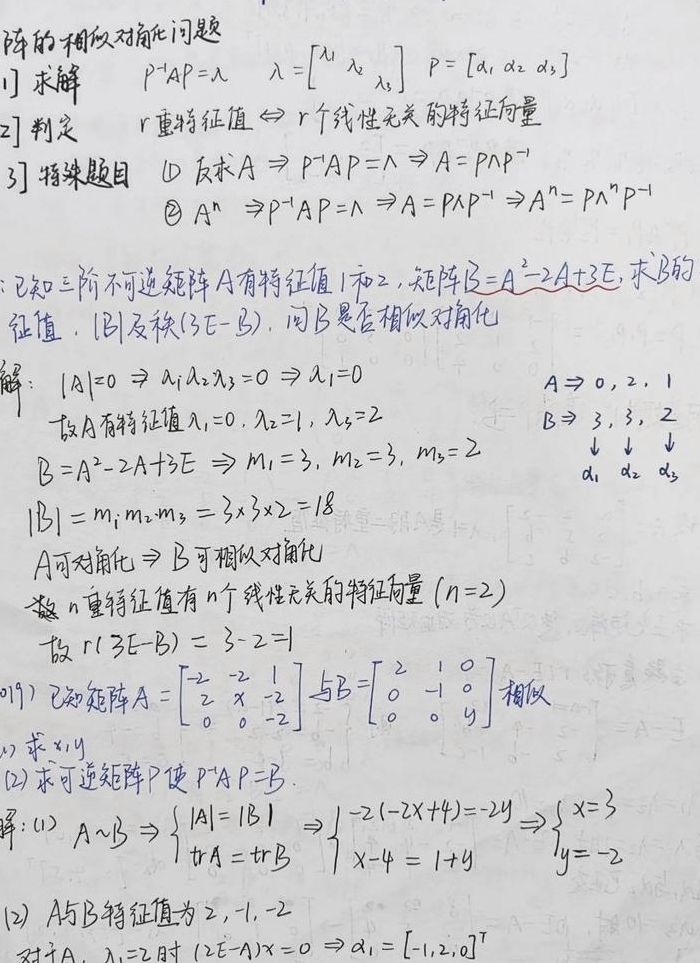 阵的相似对角化问题
1] 求解 P⁻¹AP=λ λ=[λ₁ λ₂ λ₃] P=[α₁ α₂ α₃]
2] 判定 r重特征值 ⇔ r个线性无关的特征向量
3] 特殊题目 ① 反求A ⇒ P⁻¹AP=Λ ⇒ A=PΛP⁻¹
② Aⁿ ⇒ P⁻¹AP=Λ ⇒ A=PΛP⁻¹ ⇒ Aⁿ=PΛⁿP⁻¹
:已知三阶不可逆矩阵A有特征值1和2,矩阵B=A²-2A+3E,求B的
征值,|B|及秩(3E-B),问B是否相似对角化
解: |A|=0 ⇒ λ₁λ₂λ₃=0 ⇒ λ₁=0
故A有特征值λ₁=0,λ₂=1,λ₃=2
B=A²-2A+3E ⇒ m₁=3, m₂=3, m₃=2
A⇒ 0, 2, 1
B⇒ 3, 3, 2
↓ ↓ ↓
α₁ α₂ α₃
|B|=m₁m₂m₃=3×3×2=18
A可对角化 ⇒ B可相似对角化
故 n重特征值有n个线性无关的特征向量(n=2)
故 r(3E-B) = 3-2=1
019) 已知矩阵A=[-2 -2 1; 2 x -2; 0 0 -2] 与B=[2 1 0; 0 -1 0; 0 0 y] 相似
(1) 求x,y
(2) 求可逆矩阵P使P⁻¹AP=B.
解:(1) A~B ⇒ {|A|=|B| trA=trB ⇒ {-2(-2x+4)=-2y x-4=1+y ⇒ {x=3 y=-2
(2) A与B特征值为2,-1,-2
对于A, λ₁=2时 (2E-A)x=0 ⇒ α₁=[-1,2,0]ᵀ